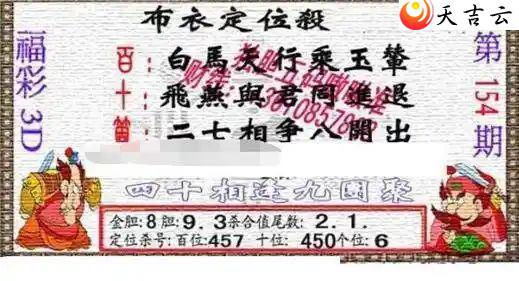 天吉云
布衣定位殺
福彩3D
第154期
百：白馬天行乘玉輦
十：飛燕與君同進退
個：二七相争八開出
四十相逢九團聚
金胆:8胆:9.3杀合值尾数:2.1.
定位杀号:百位:457 十位:450个位:6